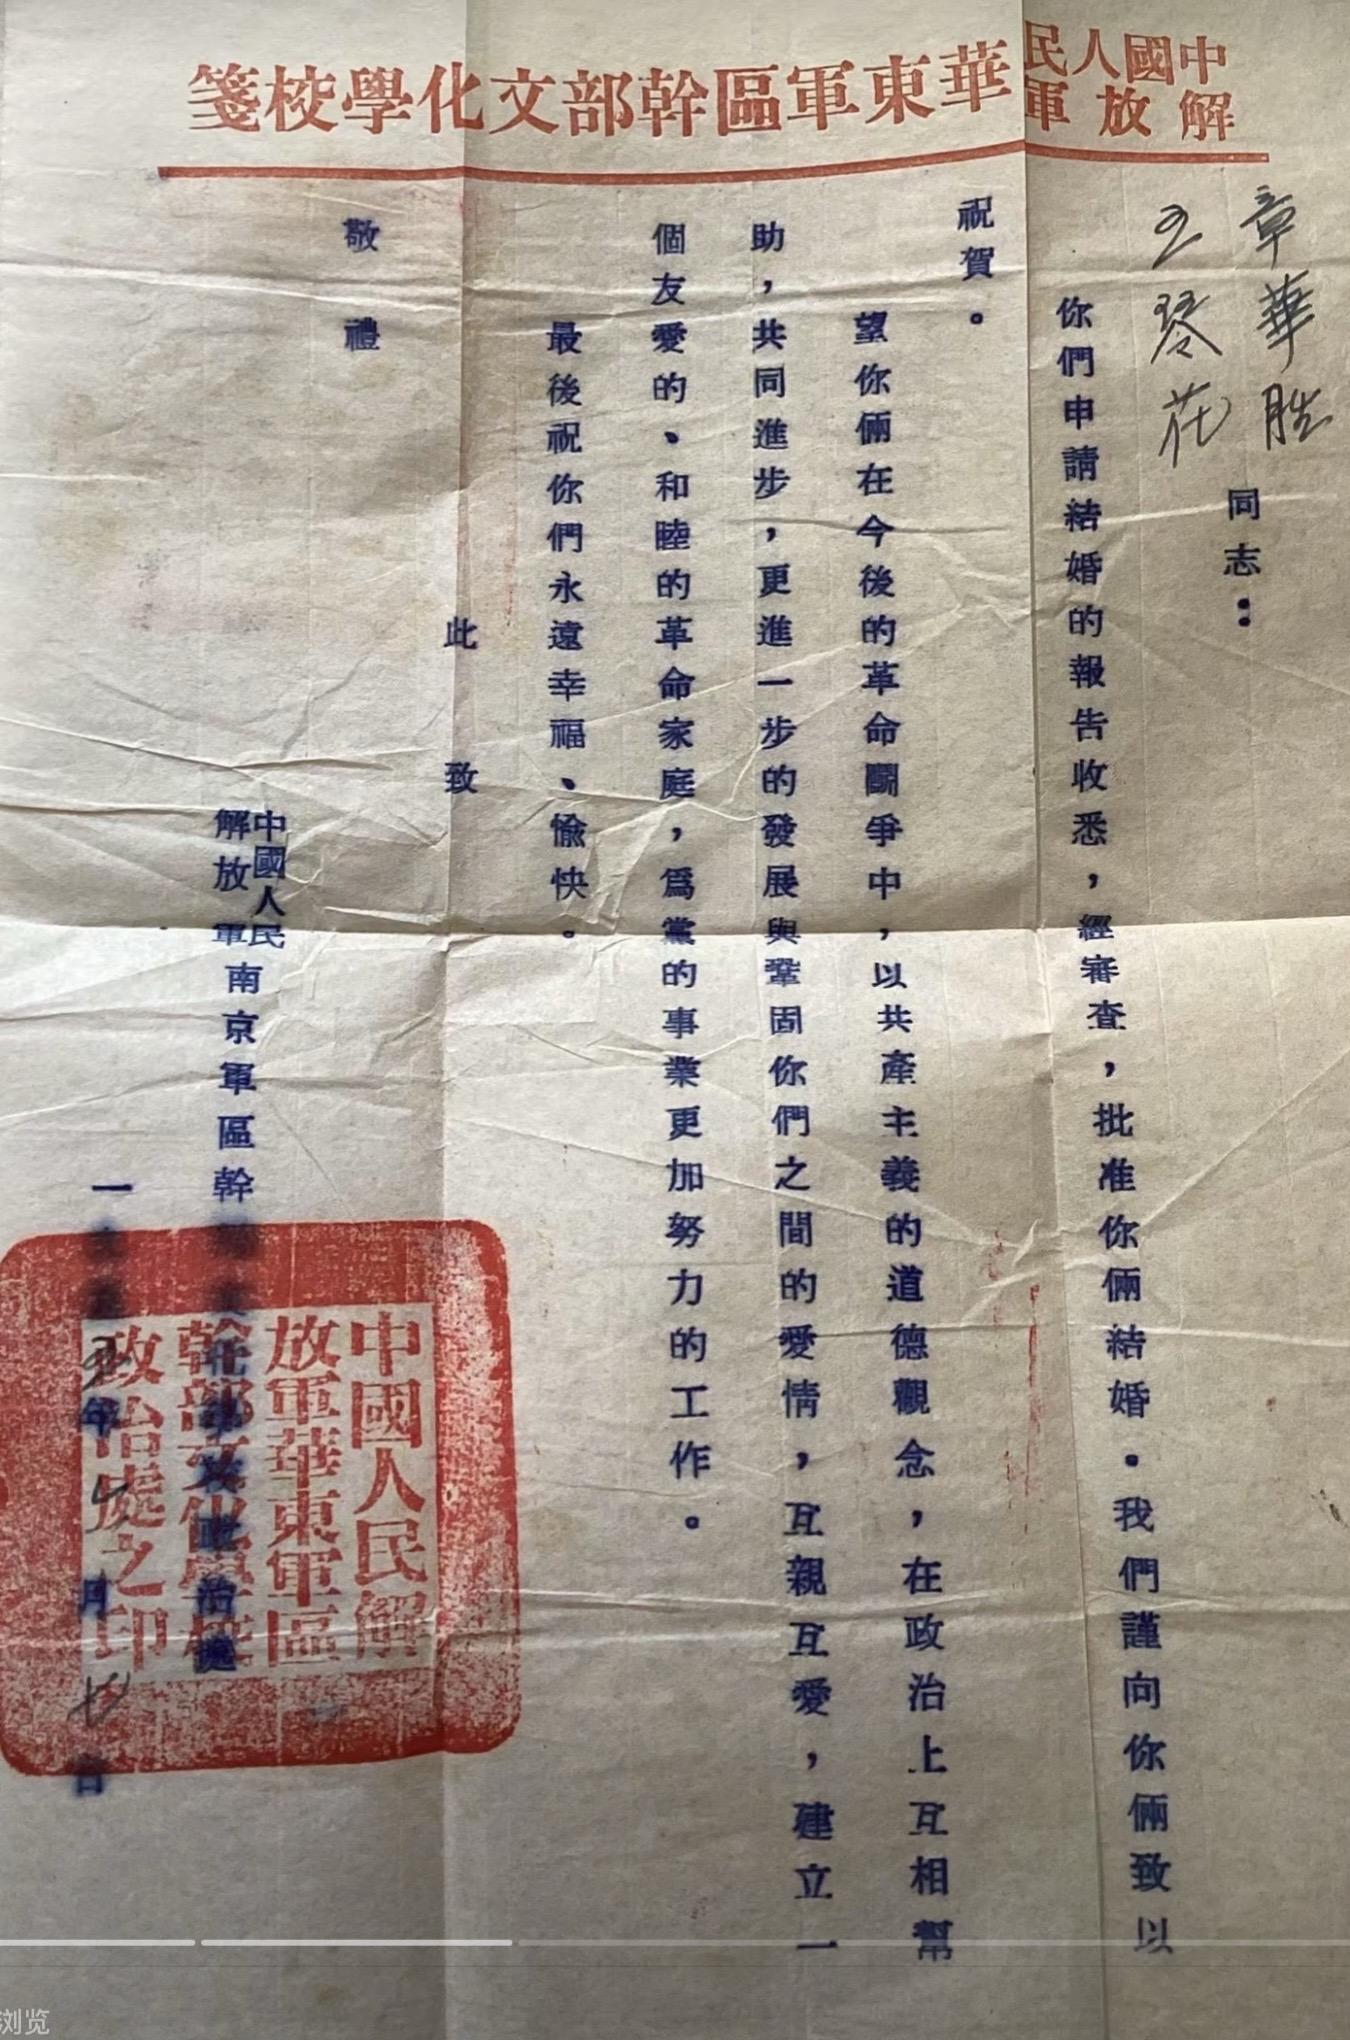 中國人民
解放軍
華東軍區幹部文化學校箋
章華勝
王琴花
同志：
你們申請結婚的報告收悉，經審查，批准你倆結婚。我們謹向你倆致以
祝賀。
望你倆在今後的革命鬭爭中，以共產主義的道德觀念，在政治上互相幫
助，共同進步，更進一步的發展與鞏固你們之間的愛情，互親互愛，建立一
個友愛的、和睦的革命家庭，爲黨的事業更加努力的工作。
最後祝你們永遠幸福、愉快。
此致
敬禮
中國人民
解放軍
南京軍區幹部文化學校政治處
一年月七日
中國人民解
放軍華東軍區
幹部文化學校
政治處之印
浏览